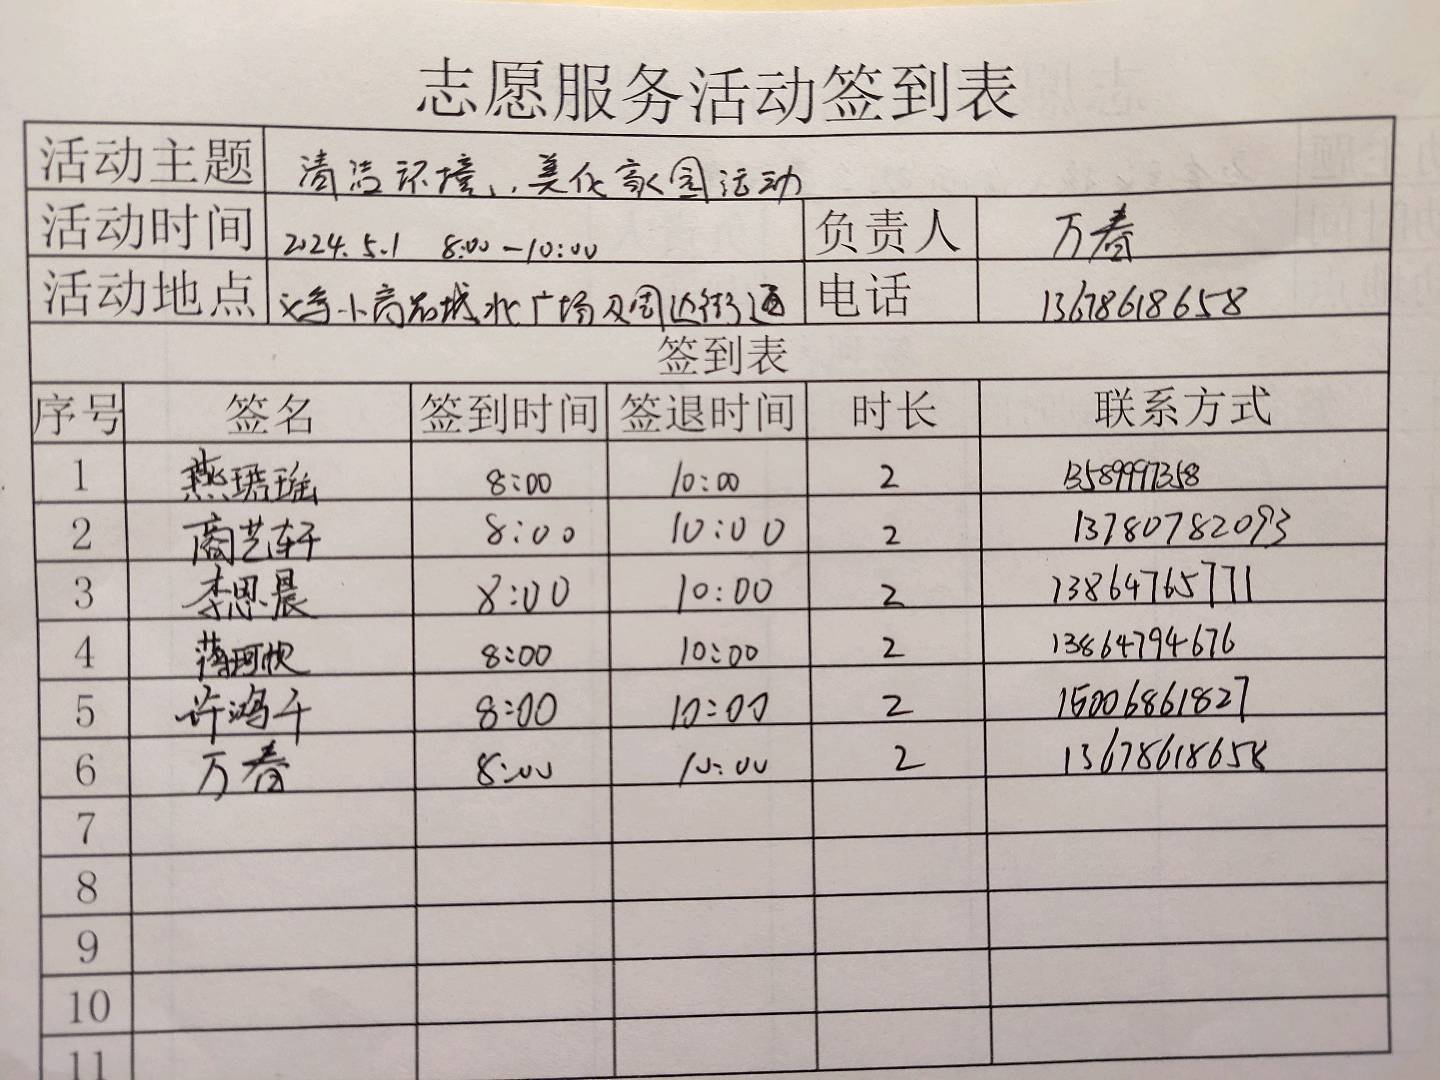 志愿服务活动签到表
活动主题 清洁环境,,美化家园活动
活动时间 2024.5.1 8:00-10:00 负责人 万春
活动地点 义乌小商品城北广场及周边街道 电话 13678618658
签到表
序号 签名 签到时间 签退时间 时长 联系方式
1 燕珺瑶 8:00 10:00 2 13589997358
2 商艺轩 8:00 10:00 2 13780782093
3 李思晨 8:00 10:00 2 13864765771
4 蒋珂忱 8:00 10:00 2 13864794676
5 许鸿千 8:00 10:00 2 15006861827
6 万春 8:00 10:00 2 13678618658
7
8
9
10
11